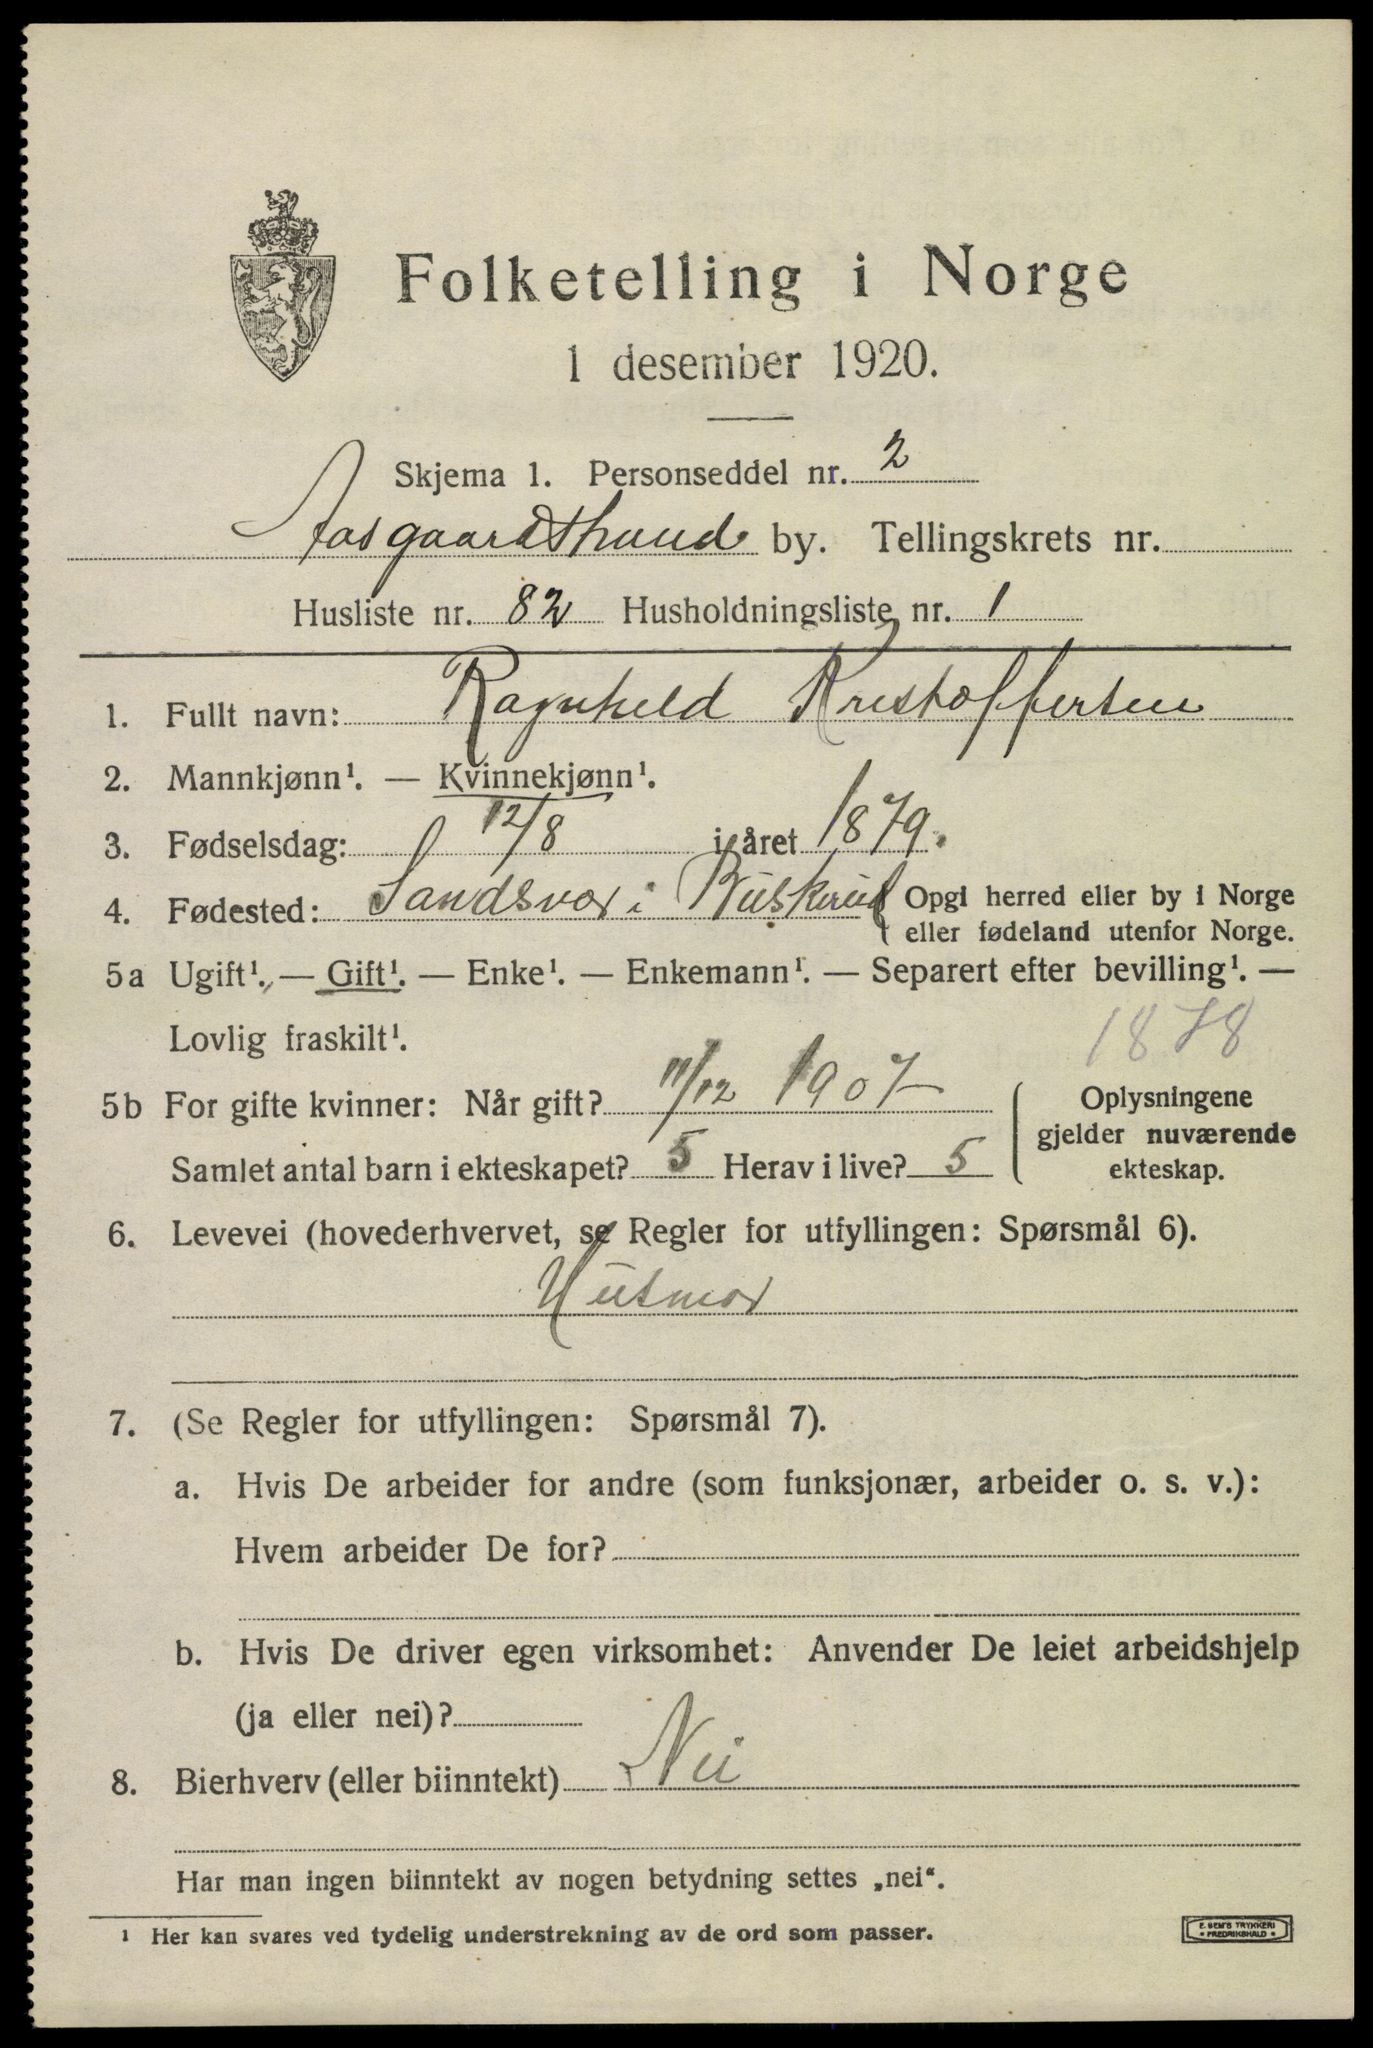 Folketelling i Norge
1 desember 1920.
Skjema 1. Personseddel nr. 2
Aasgaardstrand by. Tellingskrets nr.
Husliste nr. 82 Husholdningsliste nr. 1
1. Fullt navn: Ragnhild Kristoffersen
2. Mannkjønn¹. — Kvinnekjønn¹.
3. Fødselsdag: 12/8 i året 1879.
4. Fødested: Sandsvær i Buskerud { Opgi herred eller by i Norge
eller fødeland utenfor Norge.
5a Ugift¹. — Gift¹. — Enke¹. — Enkemann¹. — Separert efter bevilling¹. —
Lovlig fraskilt¹.
1878
5b For gifte kvinner: Når gift? 11/12 1907
Samlet antal barn i ekteskapet? 5 Herav i live? 5
Oplysningene
gjelder nuværende
ekteskap.
6. Levevei (hovederhvervet, se Regler for utfyllingen: Spørsmål 6).
Husmor
7. (Se Regler for utfyllingen: Spørsmål 7).
a. Hvis De arbeider for andre (som funksjonær, arbeider o. s. v.):
Hvem arbeider De for?
b. Hvis De driver egen virksomhet: Anvender De leiet arbeidshjelp
(ja eller nei)?
8. Bierhverv (eller biinntekt) Nei
Har man ingen biinntekt av nogen betydning settes „nei“.
¹ Her kan svares ved tydelig understrekning av de ord som passer.
E. SEM'S TRYKKERI
• FREDRIKSHALD •